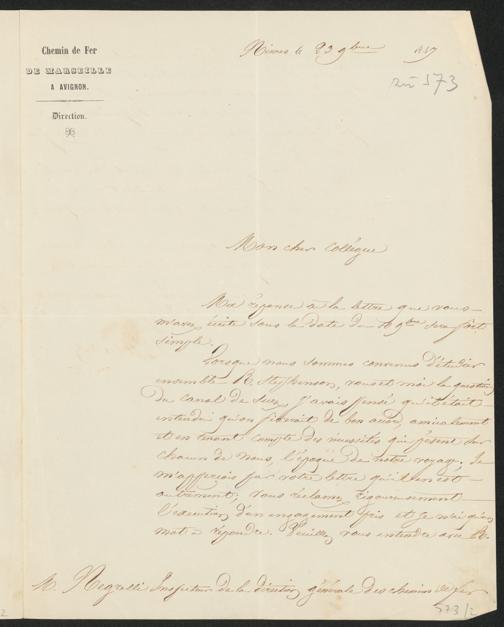 Chemin de Fer
DE MARSEILLE
A AVIGNON.
Direction.
Nîmes le 23 9bre 18
573
Mon cher Collègue
Ma réponse à la lettre que vous
m'avez écrite sous la date du 9bre sera fort
simple.
Lorsque nous sommes convenus d'étudier
ensemble R. Stephenson, vous et moi la question
du canal de Suez, j'avais pensé qu'il était
entendu qu'on fixerait de bon accord, amicalement
et en tenant compte des nécessités qui pèsent sur
chacun de nous, l'époque de notre voyage. Je
m'aperçois par votre lettre qu'il en est
autrement; vous réclamez rigoureusement
l'exécution d'un engagement pris et je n'ai qu'un
mot à répondre. Veuillez vous entendre avec R.
M. Negrelli Inspecteur de la direction générale des chemins de fer
573/2
2